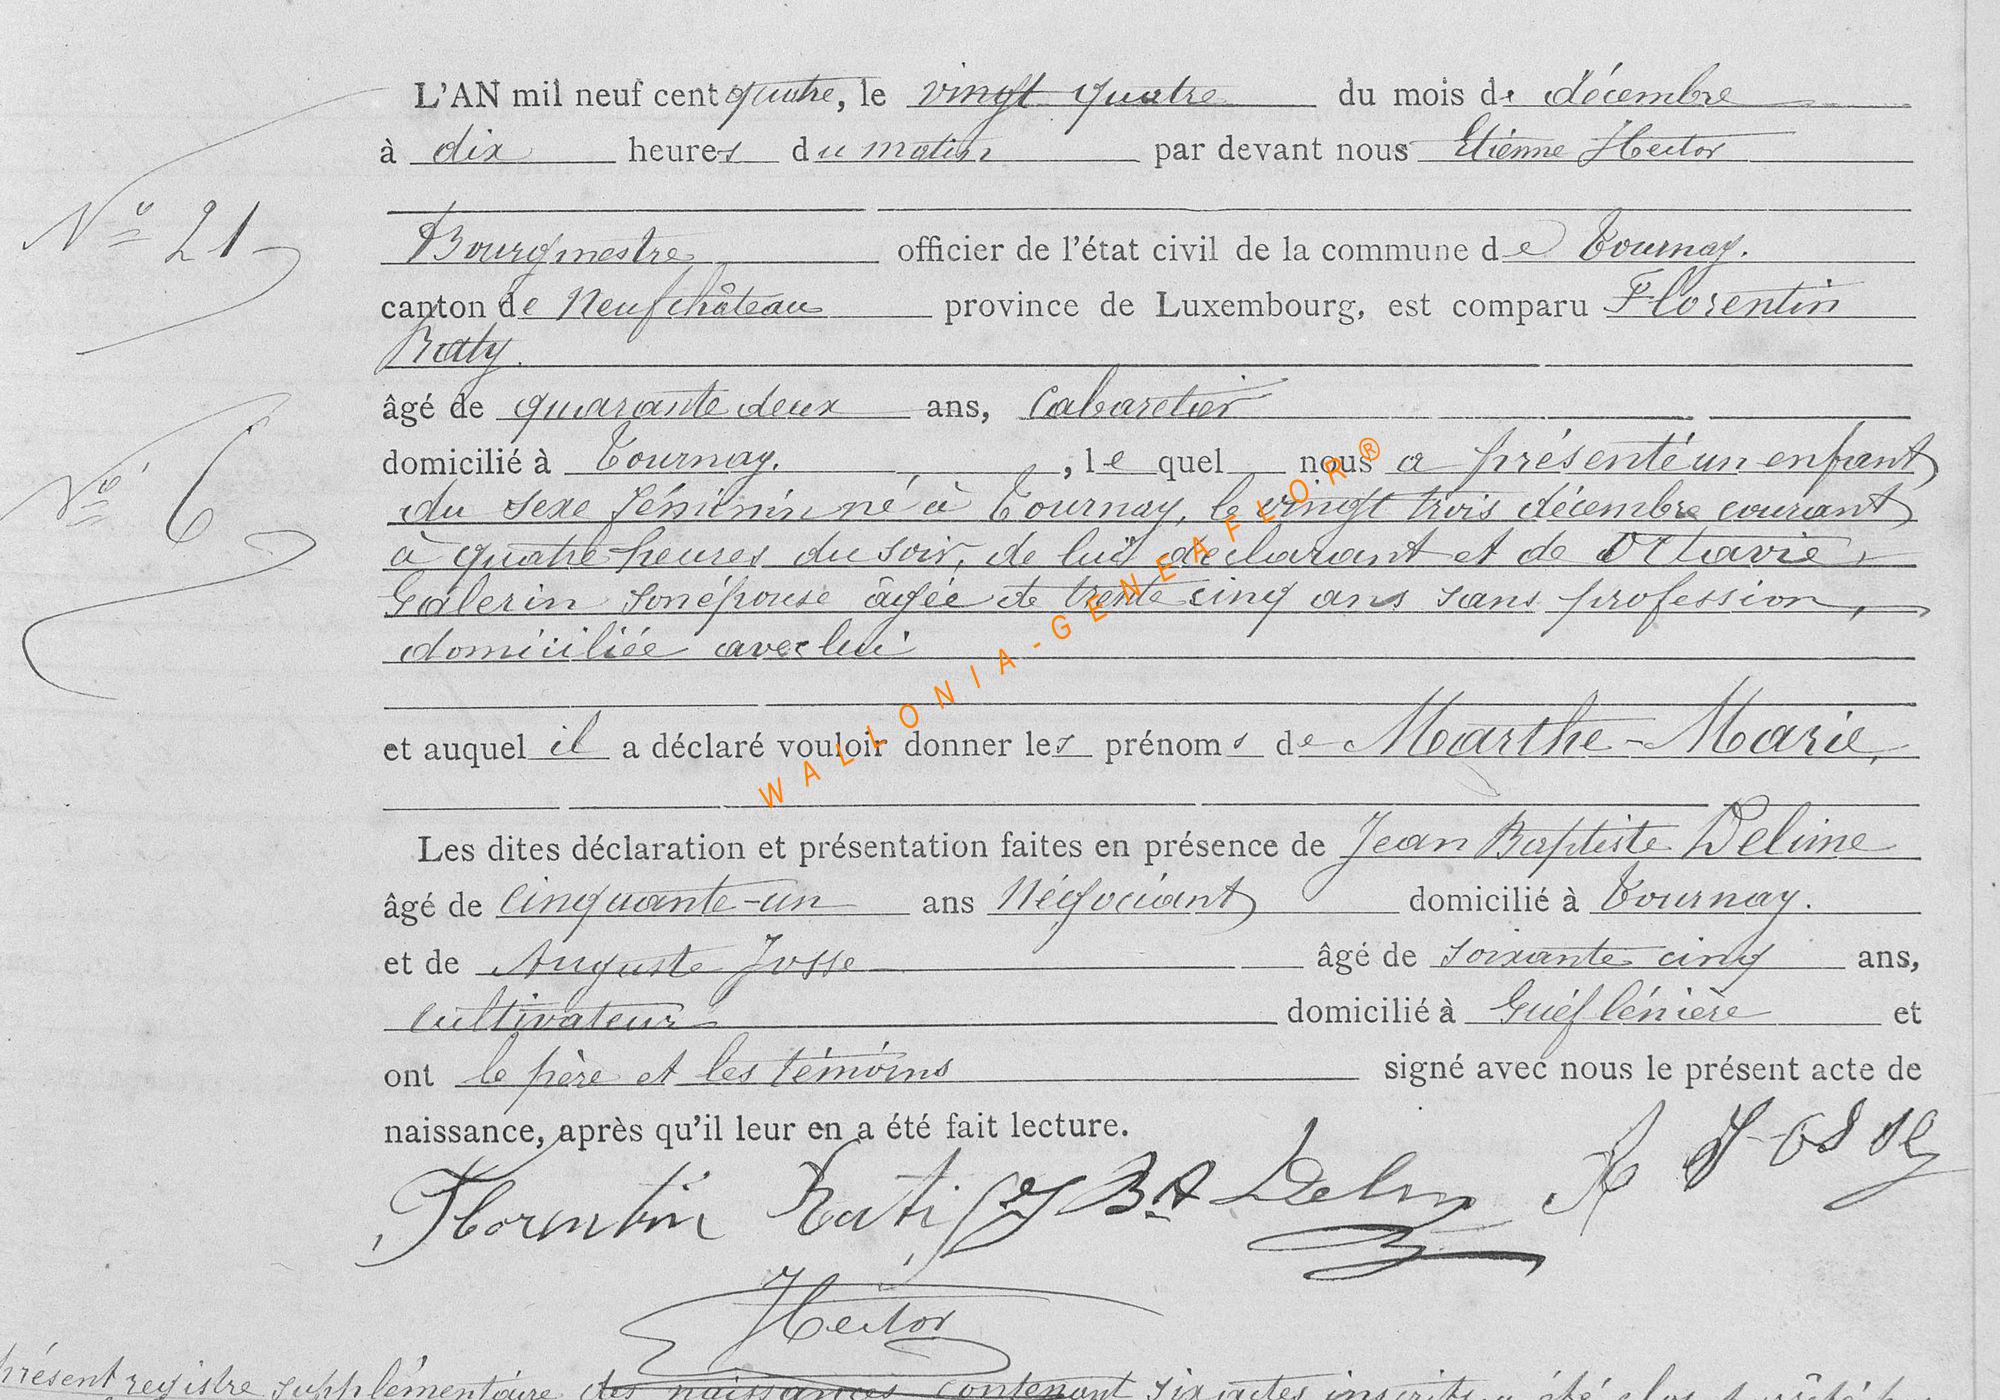 L'AN mil neuf cent quatre, le vingt quatre du mois de décembre
à dix heures du matin par devant nous Etienne Hector
N° 21
Bourgmestre officier de l'état civil de la commune de Tournay.
canton de Neufchâteau province de Luxembourg, est comparu Florentin
Raty.
âgé de quarante deux ans, Cabaretier
domicilié à Tournay. , le quel nous a présenté un enfant
N° 6
du sexe féminin né à Tournay, le vingt trois décembre courant
à quatre heures du soir, de lui déclarant et de Octavie
Galerin son épouse âgée de trente cinq ans sans profession,
domiciliée avec lui
et auquel il a déclaré vouloir donner les prénoms de Marthe-Marie,
Les dites déclaration et présentation faites en présence de Jean Baptiste Delime
âgé de cinquante-un ans Négociant domicilié à Tournay.
et de Auguste Josse âgé de soixante cinq ans,
cultivateur domicilié à Guéflénière et
ont le père et les témoins signé avec nous le présent acte de
naissance, après qu'il leur en a été fait lecture.
Florentin Rati J Bte A Josse
Hector
présent registre supplémentaire des naissances contenant six actes inscrits a été clos
WALLONIA-GENEAFLOR®